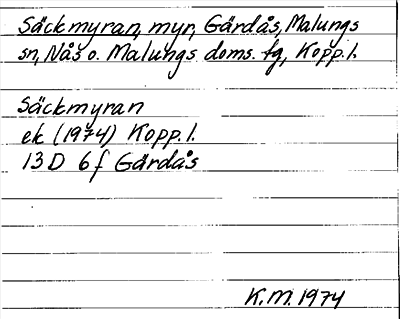 Säckmyran, myr, Gärdås, Malungs
sn, Nås o. Malungs doms. fg, Kopp. l.
Säckmyran
ek (1974) Kopp. l.
13 D 6 f Gärdås
K. M. 1974